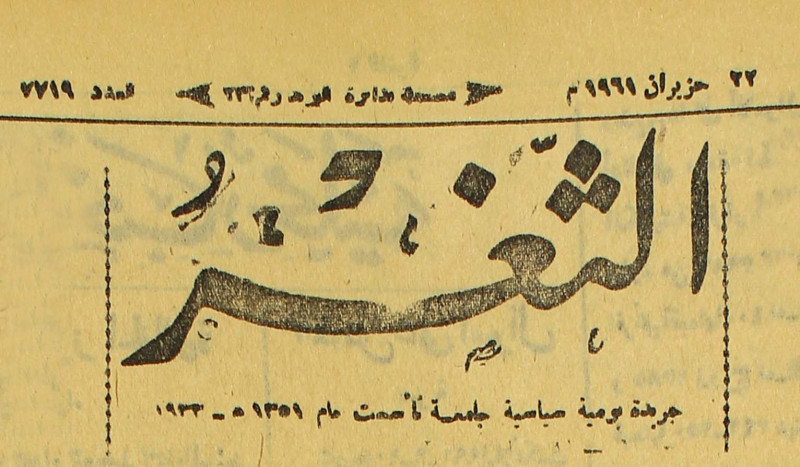 ٢٢ حزيران ١٩٦١ م مسجلة بدائرة البريد رقم ٢٣٦ العدد ٧٧١٩
الثغر
جريدة يومية سياسية جامعة تأسست عام ١٣٥١ هـ - ١٩٣٣